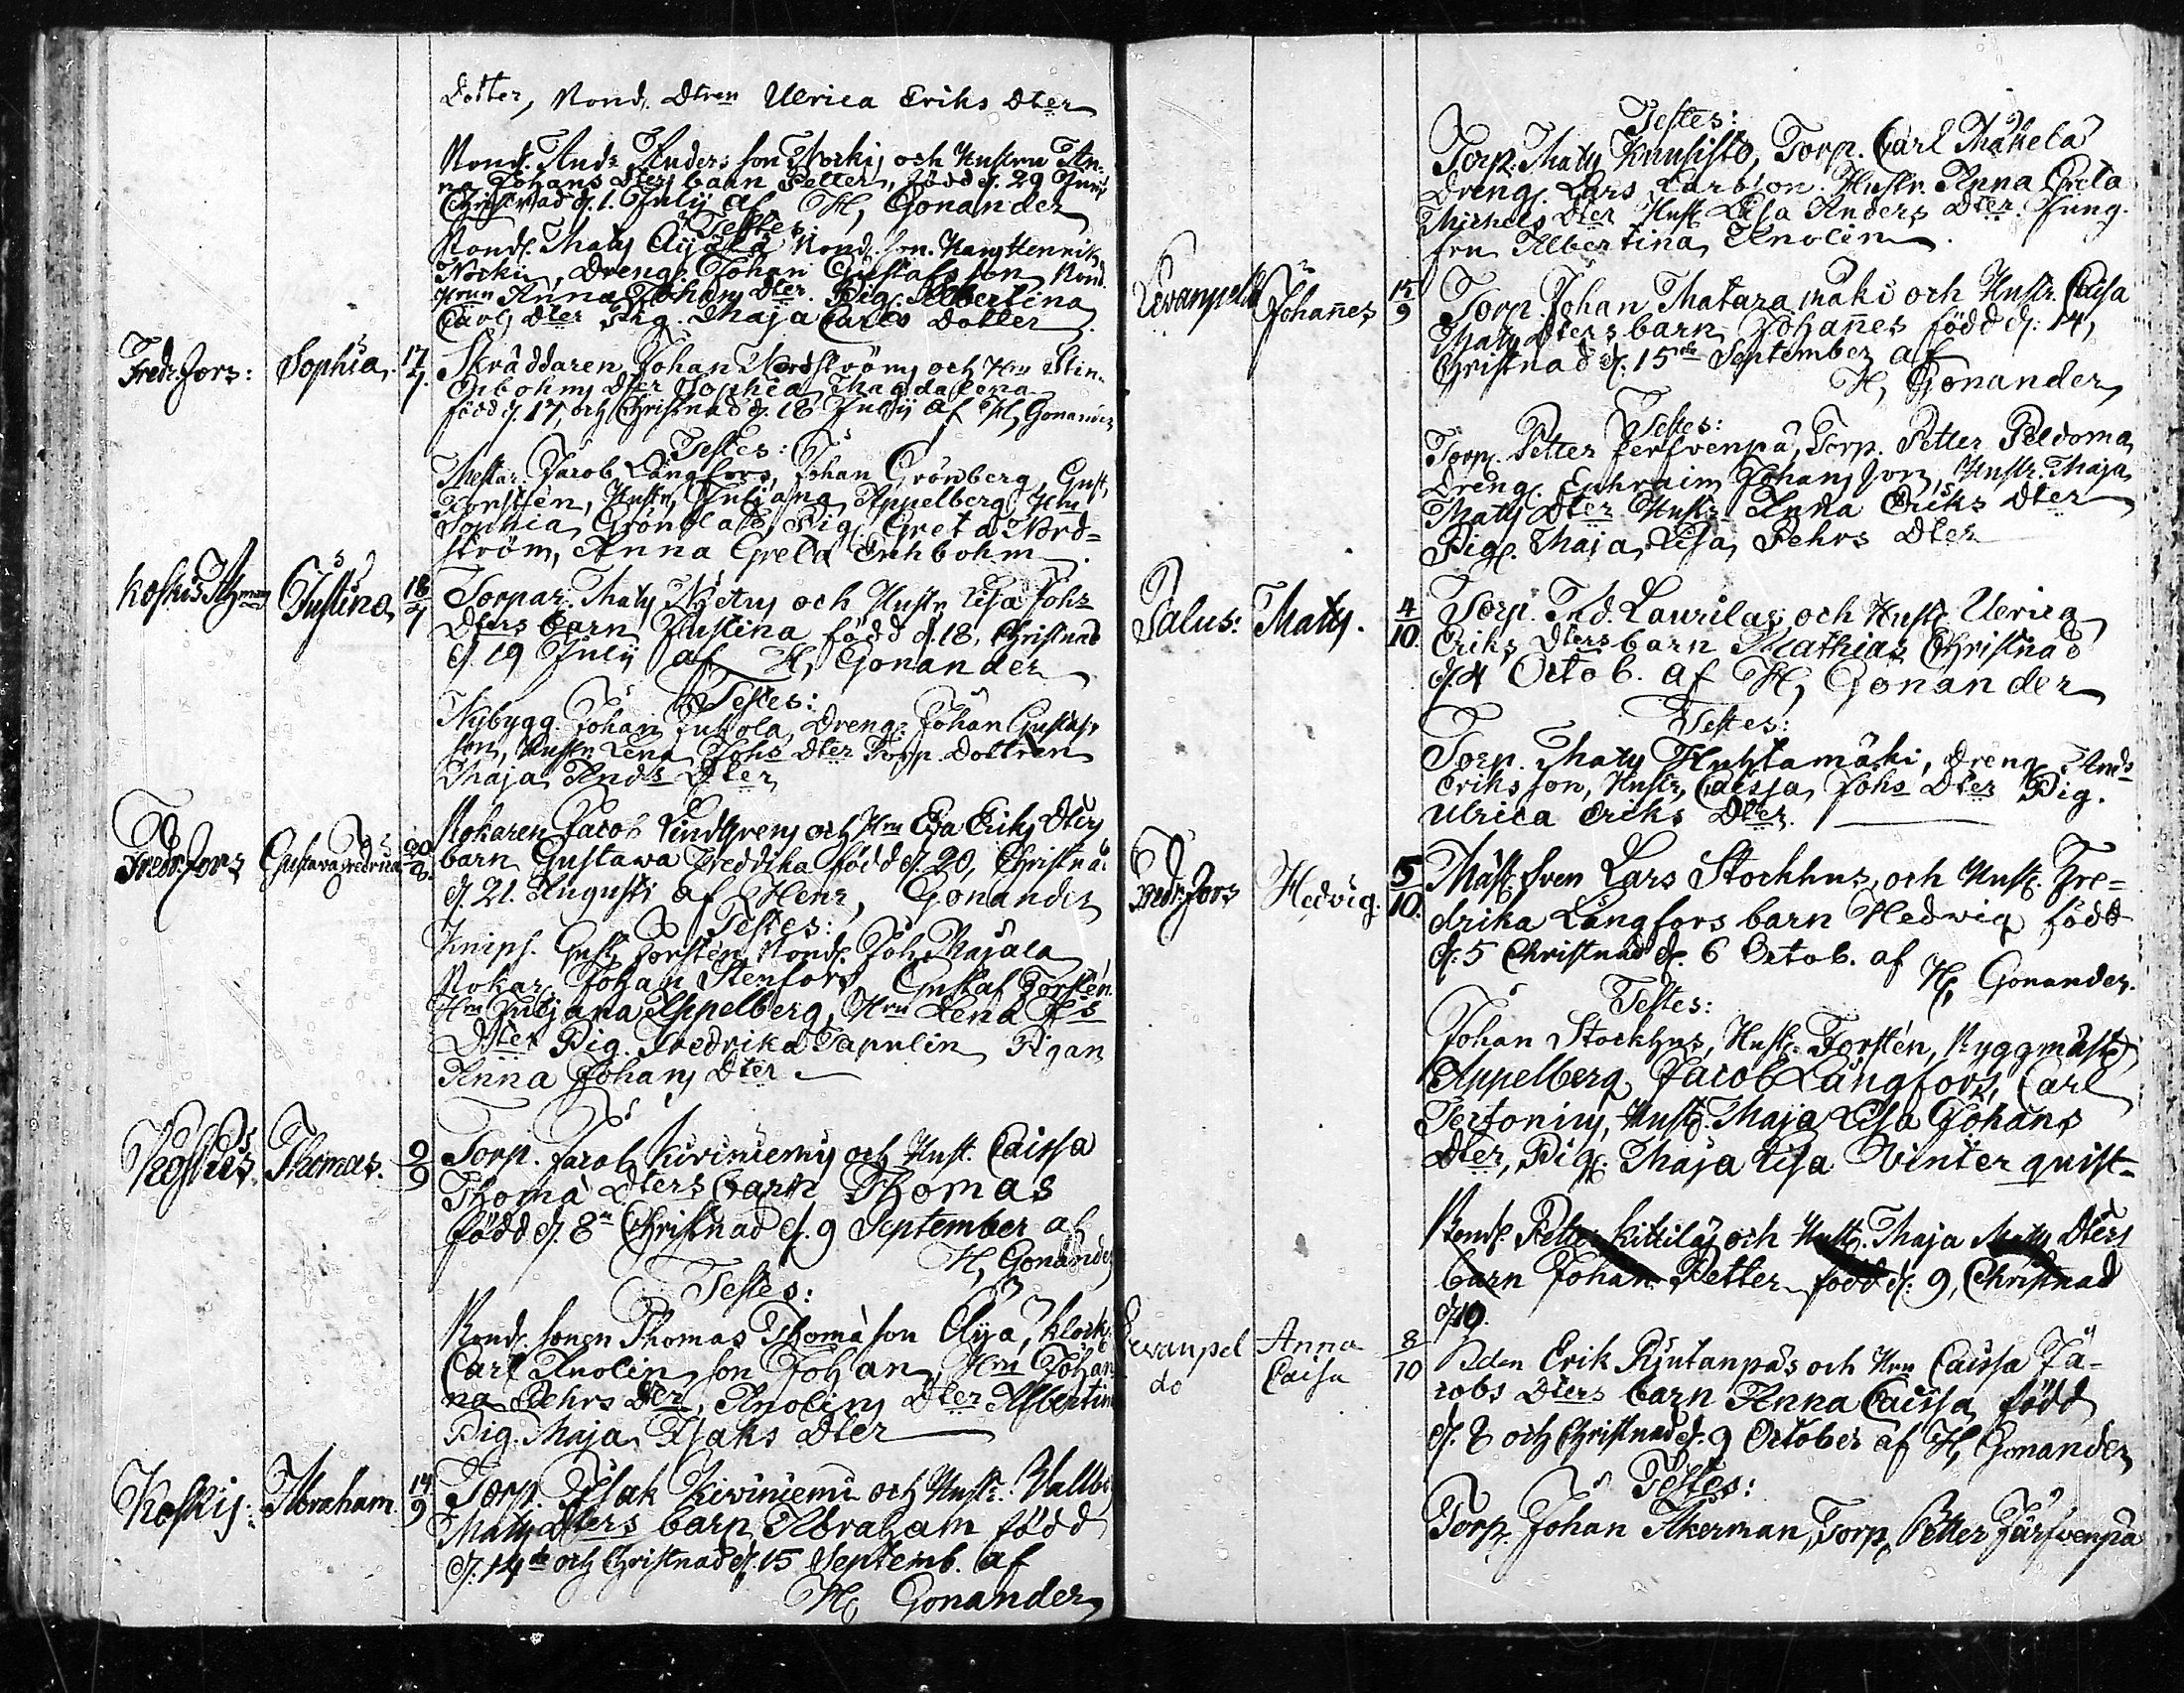 Dotter, Bond. Dtren Ulrica Eriks Dter
Bond. Ands Andersson Norki och Hustru An-
na Johans Dters barn Petter, född d. 29 Junii
Christnad d. 1. Julij af H, Gonander
Testes:
Bond. Matts Äijälä Bond. son. Hans Henrik
Norki, Dreng. Johan Gustafsson, Bond.
Hrun Anna Johans Dter. Pig. Albertina
Carls Dter Pig. Maja Carls Dotter
Fredr. fors: Sophia. 17/7. Skräddaren Johan Nordström och Hru Stin
Enbohms Dter Sophia Magdalena
född d. 17, och Christnad d. 18 Julij af H, Gonander
Testes:
Mestar. Jacob Långfors, Johan Grönberg, Gust,
Forstén, Hustr, Juliana Appelberg Hru
Sophia Grönblad, Pig. Greta Nord=
ström, Anna Greta Enbohm
Koskis Justina 18/7 Torpar. Matts och Hustr Lisa Johs
Dters barn Justina född d. 18, Christnad
d. 19 Julij af H, Gonander
Testes:
Nybygg. Johan Jussola, Dreng: Johan Gustafs
son, Hustr Lena Johs Dter Torp. Dottren
Maja Ands Dter
Fredr. fors Gustava Fredrica 20/8. Kokaren Jacob Lindgrens och Hru Eva Eriks Dters
barn Gustawa Fredrika född d. 20, Christna.
d. 21. Augusti af Henr, Gonander
Testes:
Knips. Gust, Forstén, Bond. Joh. Majala
Kokar. Johan Stenfors, Gustaf Forstén.
Hru Juliana Appelberg, Hru Lena
Dter Pig. Fredrika Tapulin, Pigan
Anna Johans Dter
Koskis. Thomas. 9/9 Torp. Jacob Kiviniemis och Hust. Caissa
Thomà Dters barn Thomas
född d. 8n Christnad d. 9 September af
H, Gonander
Testes:
Bond. sonen Thomas Thomàson Äijä, Klock.
Carl Anolin, son Johan, Hru Johan-
na Pehrs Dter, Anolins Dter Albertin
Pig. Maja Isaks Dter
Koskis: Abraham. 14/9 Torp. Isak Kiviniemi och Hustr. Vallbo
Matts Dters barn Abraham född
d. 14de och Christnad d. 15 Septemb. af
H, Gonander
Testes:
Torp. Matts Knusisto, Torp. Carl Mäkelä
Dreng. Lars Larsson. Hustr. Anna Greta
Michels Dter Hust Lisa Anders Dter. Jung.
fru Albertina Anolin.
Evangeld Johañes 15/9 Torp. Johan Matara mäki och Hustr. Caisa
Matts Dters barn Johañes född d. 14,
Christnad d. 15de September af
H, Gonander
Testes:
Torp. Petter Jerfvenpä, Torp. Petter Peldoma
Dreng. Ephraim Johansson, Hustr. Maja
Matts Dter Hustr Anna Eriks Dter
Pig. Maja Lisa Pehrs Dter
Palus: Matts. 4/10. Torp. And. Laurilas och Hustr Ulrica
Eriks Dters barn Mathias Christnad
d. 4 Octob. af H, Gonander
Testes:
Torp. Matts Huhtamäki, Dreng. Ands
Eriks son, Hustr, Caissa Johs Dter Pig.
Ulrica Eriks Dter.
Fredr. fors Hedvig. 5/10. Mäst sven Lars Stockhus, och Hust. Fre=
drika Långfors barn Hedwig född
d. 5 Christnad d. 6 Octob. af
H, Gonander.
Testes:
Johan Stockhus, Hustr. Forstén, Byggmäst
Appelberg, Jacob Långfors, Carl
Tertonius, Hustr. Maja Lisa Johans
Dter, Pig. Maja Lisa Winter quist=
Bond. Petter Kittiläs och Hustr. Maja Matts Dters
barn Johan Petter född d. 9, Christnad
d. 10.
Evangel Anna 8/10 Bden Erik Rjutanpäs och Hru Caissa Ja-
do Caisa cobs Dters barn Anna Caissa född
d. 8 och Christnad d. 9 October af H, Gonander
Testes:
Torp. Johan Åkerman, Torp, Petter Järfvenpä